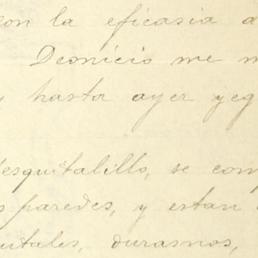 con la eficasia a
Deonicio me m
hasta ayer yeg
esquitalillo, se comp
s paredes, y estan
uitales, durasnos,